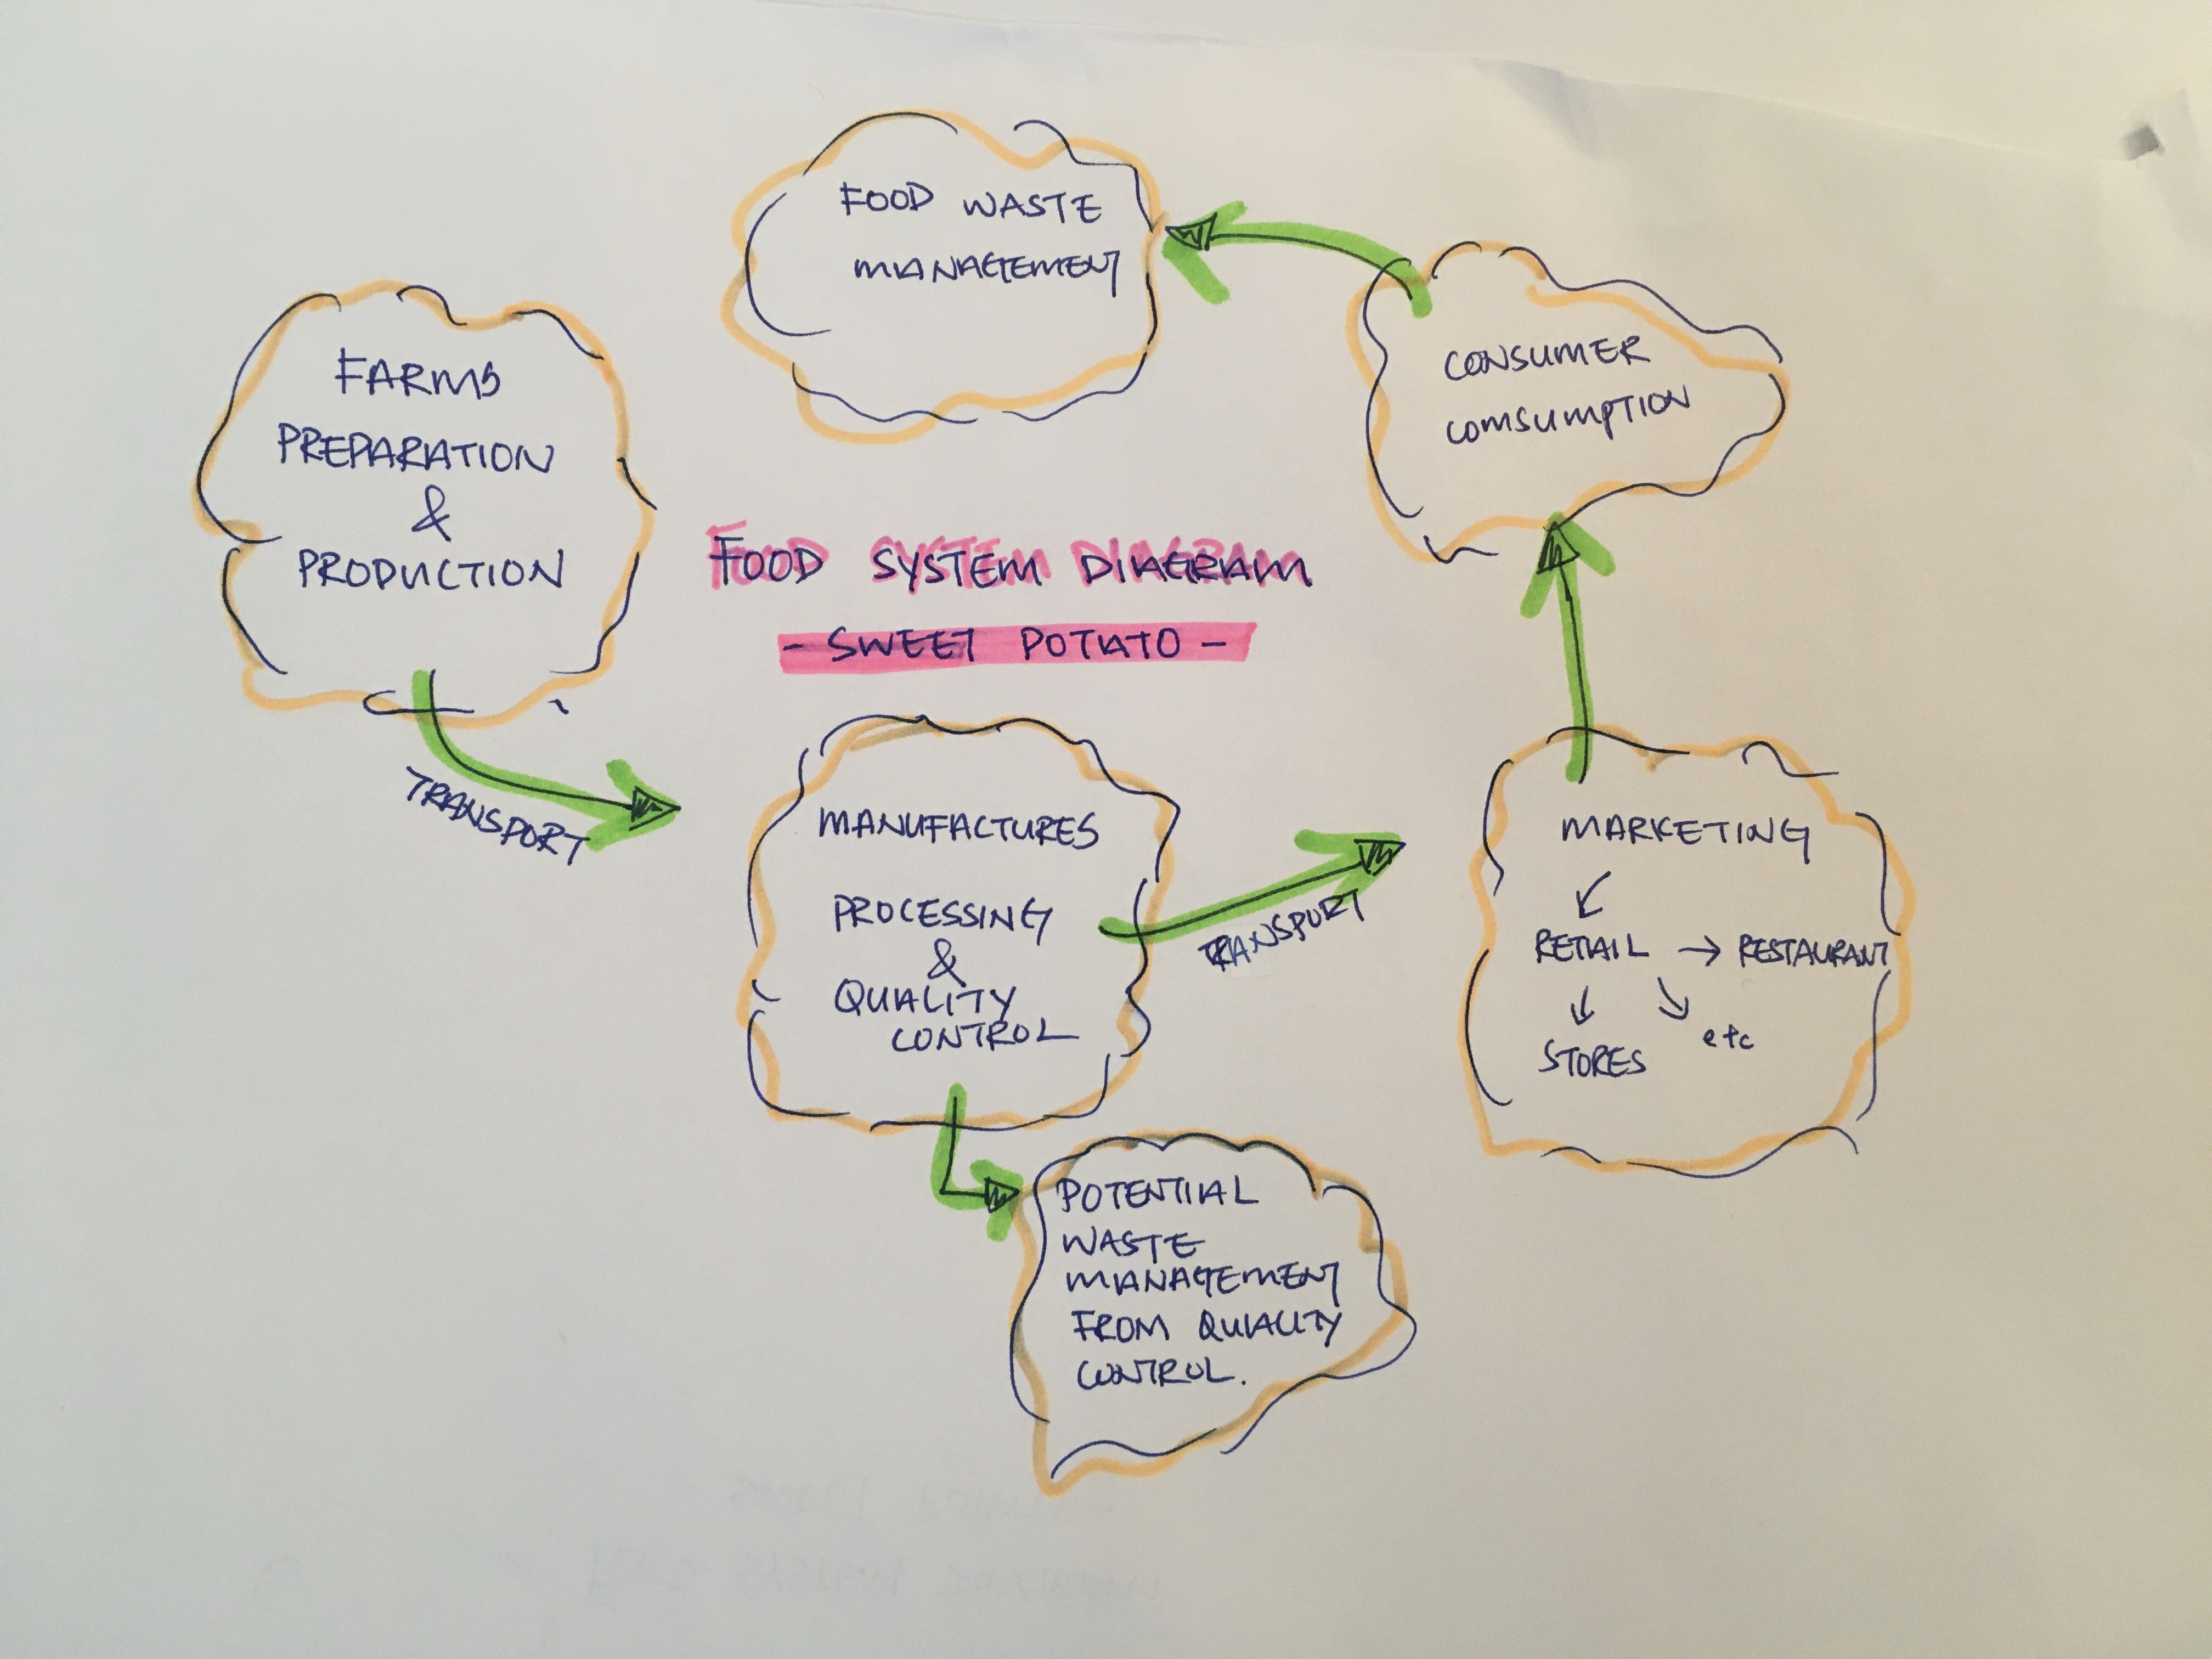 FOOD WASTE
MANAGEMENT
FARMS
PREPARATION
&
PRODUCTION
CONSUMER
COMSUMPTION
FOOD SYSTEM DIAGRAM
- SWEET POTATO -
TRANSPORT
MANUFACTURES
PROCESSING
&
QUALITY
CONTROL
TRANSPORT
MARKETING
RETAIL → RESTAURANT
STORES
etc
POTENTIAL
WASTE
MANAGEMENT
FROM QUALITY
CONTROL.